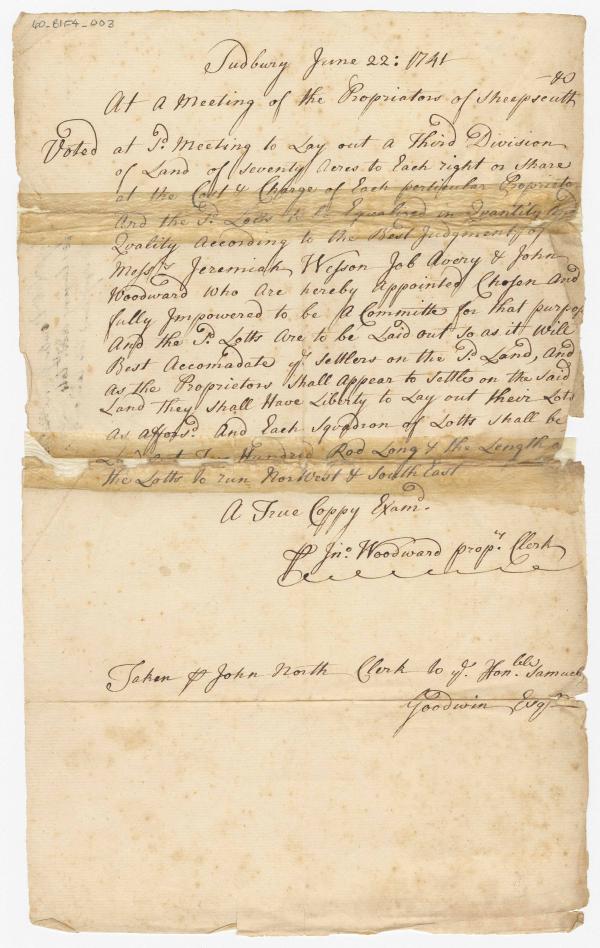 60-B1F4-003
Sudbury June 22: 1741
At a Meeting of the Propriators of Sheepscutt &c
Voted at sd. Meeting to Lay out a Third Division
of Land of seventy Acres to Each right or share
at the Cost & Charge of Each perticular Proprietor
And the sd. Lotts to be Equalized in Quantity
Quality According to the Best Judgment of
Messrs. Jeremiah Wesson Job Avery & John
Woodward who Are hereby appointed Chosen And
fully Impowered to be a Committe for that purpos
And the sd. Lotts Are to be Laid out so as it Will
Best Accomadate ye. settlers on the sd. Land, And
as the Proprietors shall Appear to settle on the said
Land they shall Have Liberty to Lay out their Lots
As affors.d And Each Squadron of Lotts shall be
Hundred Rod Long & the Length of
the Lotts to run NorWest & South East
A True Coppy Examd.
⅌ Jno. Woodward propr. Clerk
Taken ⅌ John North Clerk to ye. Honble. Samuel
Goodwin Esqr.